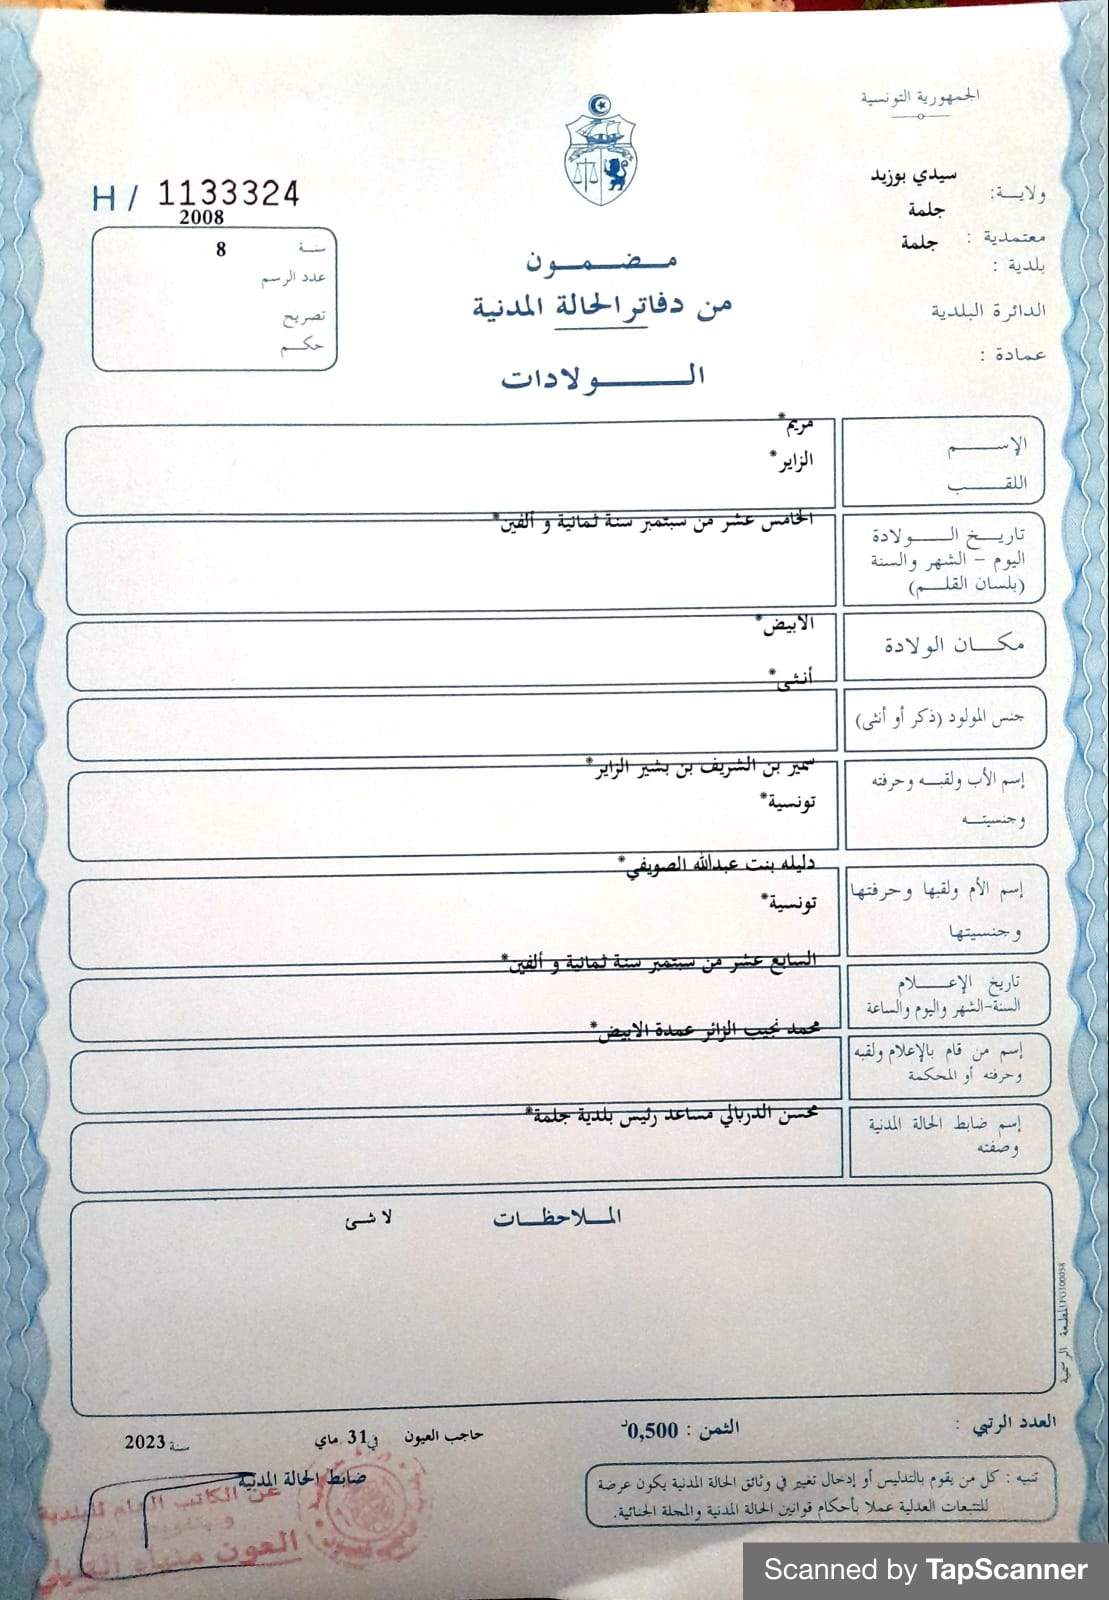 الجمهورية التونسية
ولاية: سيدي بوزيد
معتمدية : جلمة
بلدية : جلمة
الدائرة البلدية
عمادة :
H / 1133324
2008
سنة
8
عدد الرسم
تصريح
حكم
مضمون
من دفاتر الحالة المدنية
الولادات
الإسم مريم*
اللقب الزاير*
تاريخ الولادة الخامس عشر من سبتمبر سنة ثمانية و ألفين*
اليوم - الشهر والسنة
(بلسان القلم)
مكان الولادة الابيض*
جنس المولود (ذكر أو أنثى) أنثى*
إسم الأب ولقبه وحرفته سمير بن الشريف بن بشير الزاير*
وجنسيته تونسية*
إسم الأم ولقبها وحرفتها دليله بنت عبدالله الصويفي*
وجنسيتها تونسية*
تاريخ الإعلام السابع عشر من سبتمبر سنة ثمانية و ألفين*
السنة-الشهر واليوم والساعة
إسم من قام بالإعلام ولقبه محمد نجيب الزائر عمدة الابيض*
وحرفته أو المحكمة
إسم ضابط الحالة المدنية محسن الدربالي مساعد رئيس بلدية جلمة*
وصفته
الملاحظات لا شئ
المطبعة الرسمية
العدد الرتبي :
الثمن : 0,500د
حاجب العيون في 31 ماي سنة 2023
ضابط الحالة المدنية
عن الكاتب العام للبلدية
العون
تنبيه : كل من يقوم بالتدليس أو إدخال تغيير في وثائق الحالة المدنية يكون عرضة
للتتبعات العدلية عملا بأحكام قوانين الحالة المدنية والمجلة الجنائية.
Scanned by TapScanner